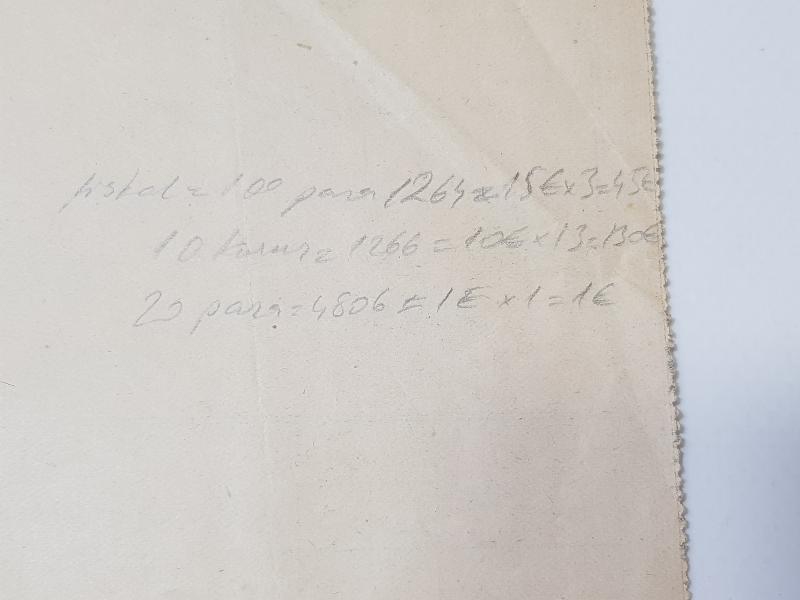 fiskal = 100 para 1264 = 15€ x 3 = 45€
10 kurus = 1266 = 10€ x 13 = 130€
20 para = 4806 = 1€ x 1 = 1€